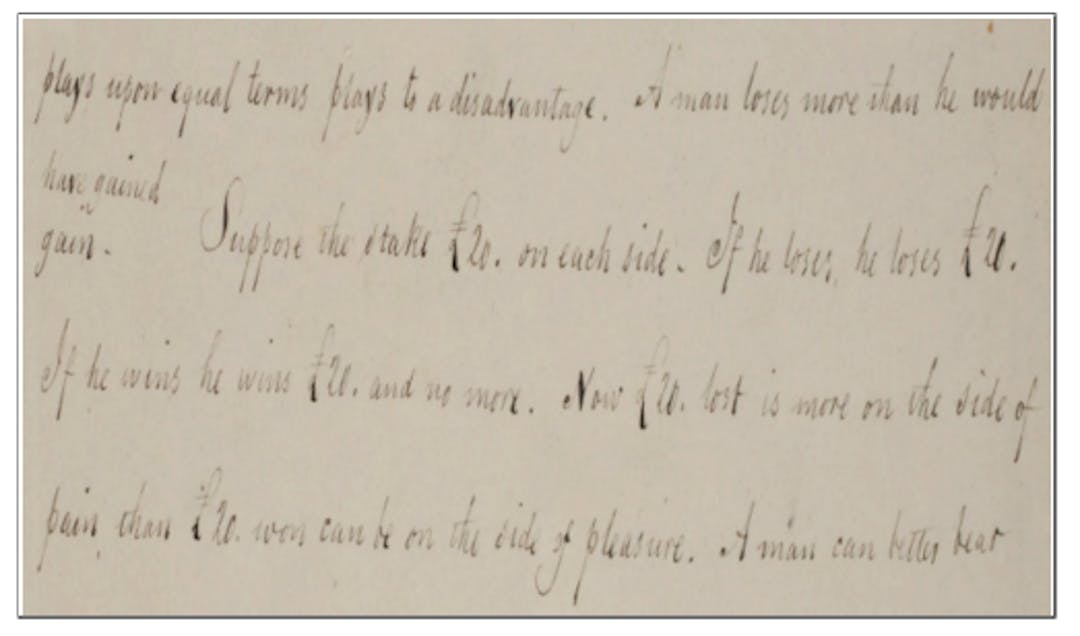 plays upon equal terms plays to a disadvantage. A man loses more than he would
have gained
gain. Suppose the stake £20. on each side. If he loses, he loses £20.
If he wins he wins £20. and no more. Now £20. lost is more on the side of
pain, than £20. won can be on the side of pleasure. A man can better bear